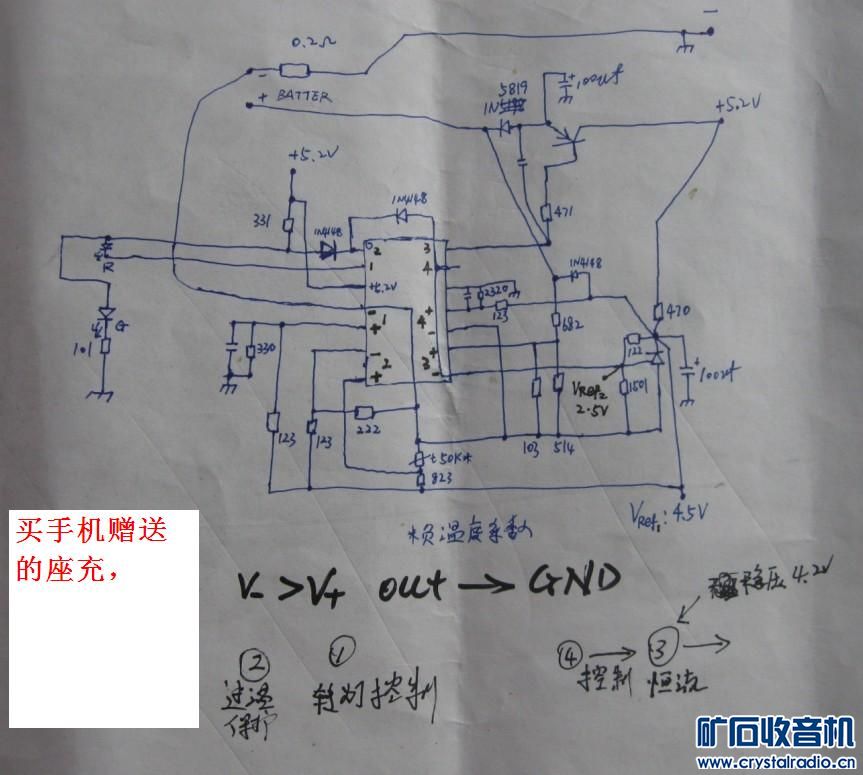 −
0.2Ω
− 
+ BATTER
5819
1N5
+ 100uf
+5.2V
+5.2V
1N4148
331
1N4148
2
3
1
4
R
+5.2V
2320
1N4148
471
470
−
+
123
G
+ 1
4
−
682
122
101
330
−
+
2
3
+
−
VRef2
2.5V
1501
+
100uf
222
123
123
103
514
t50K
823
VRef1: 4.5V
负温度系数
买手机赠送
的座充，
V- > V+ out → GND
稳压4.2V
② ① ④ → ③ →
过温 转灯控制 控制 恒流
保护
矿石收音机
www.crystalradio.cn